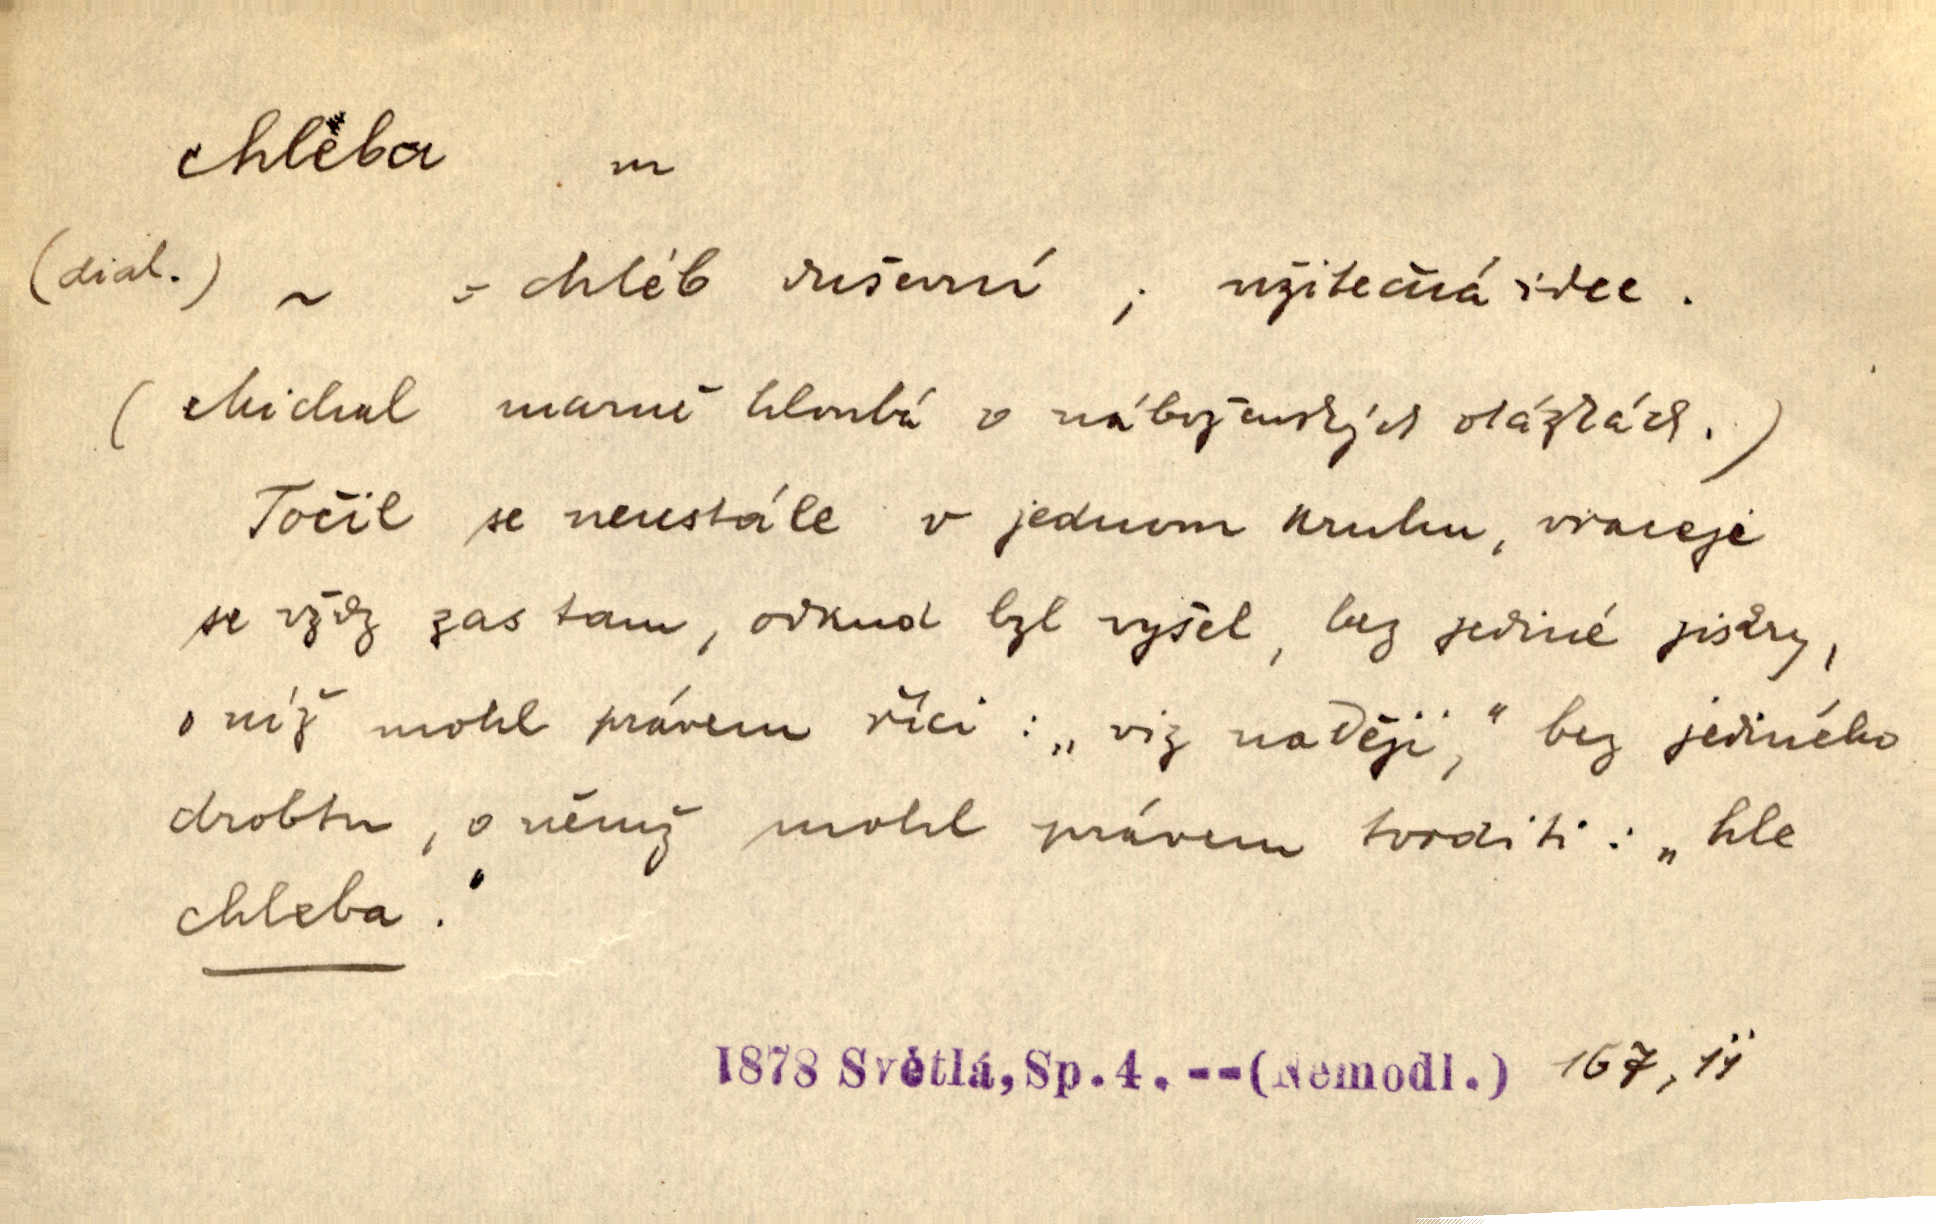 chleba m
(dial.) ~ = chléb duševní ; užitečná idee .
( Michal marně hloubá o náboženských otázkách. )
Točil se neustále v jednom kruhu, vraceje
se vždy zas tam, odkud byl vyšel, bez jediné jiskry,
o níž mohl právem říci : „ viz naději," bez jediného
drobtu , o němž mohl právem tvrditi : „ hle
chleba . "
1878 Světlá, Sp.4. --(Nemodl.) 167, ij